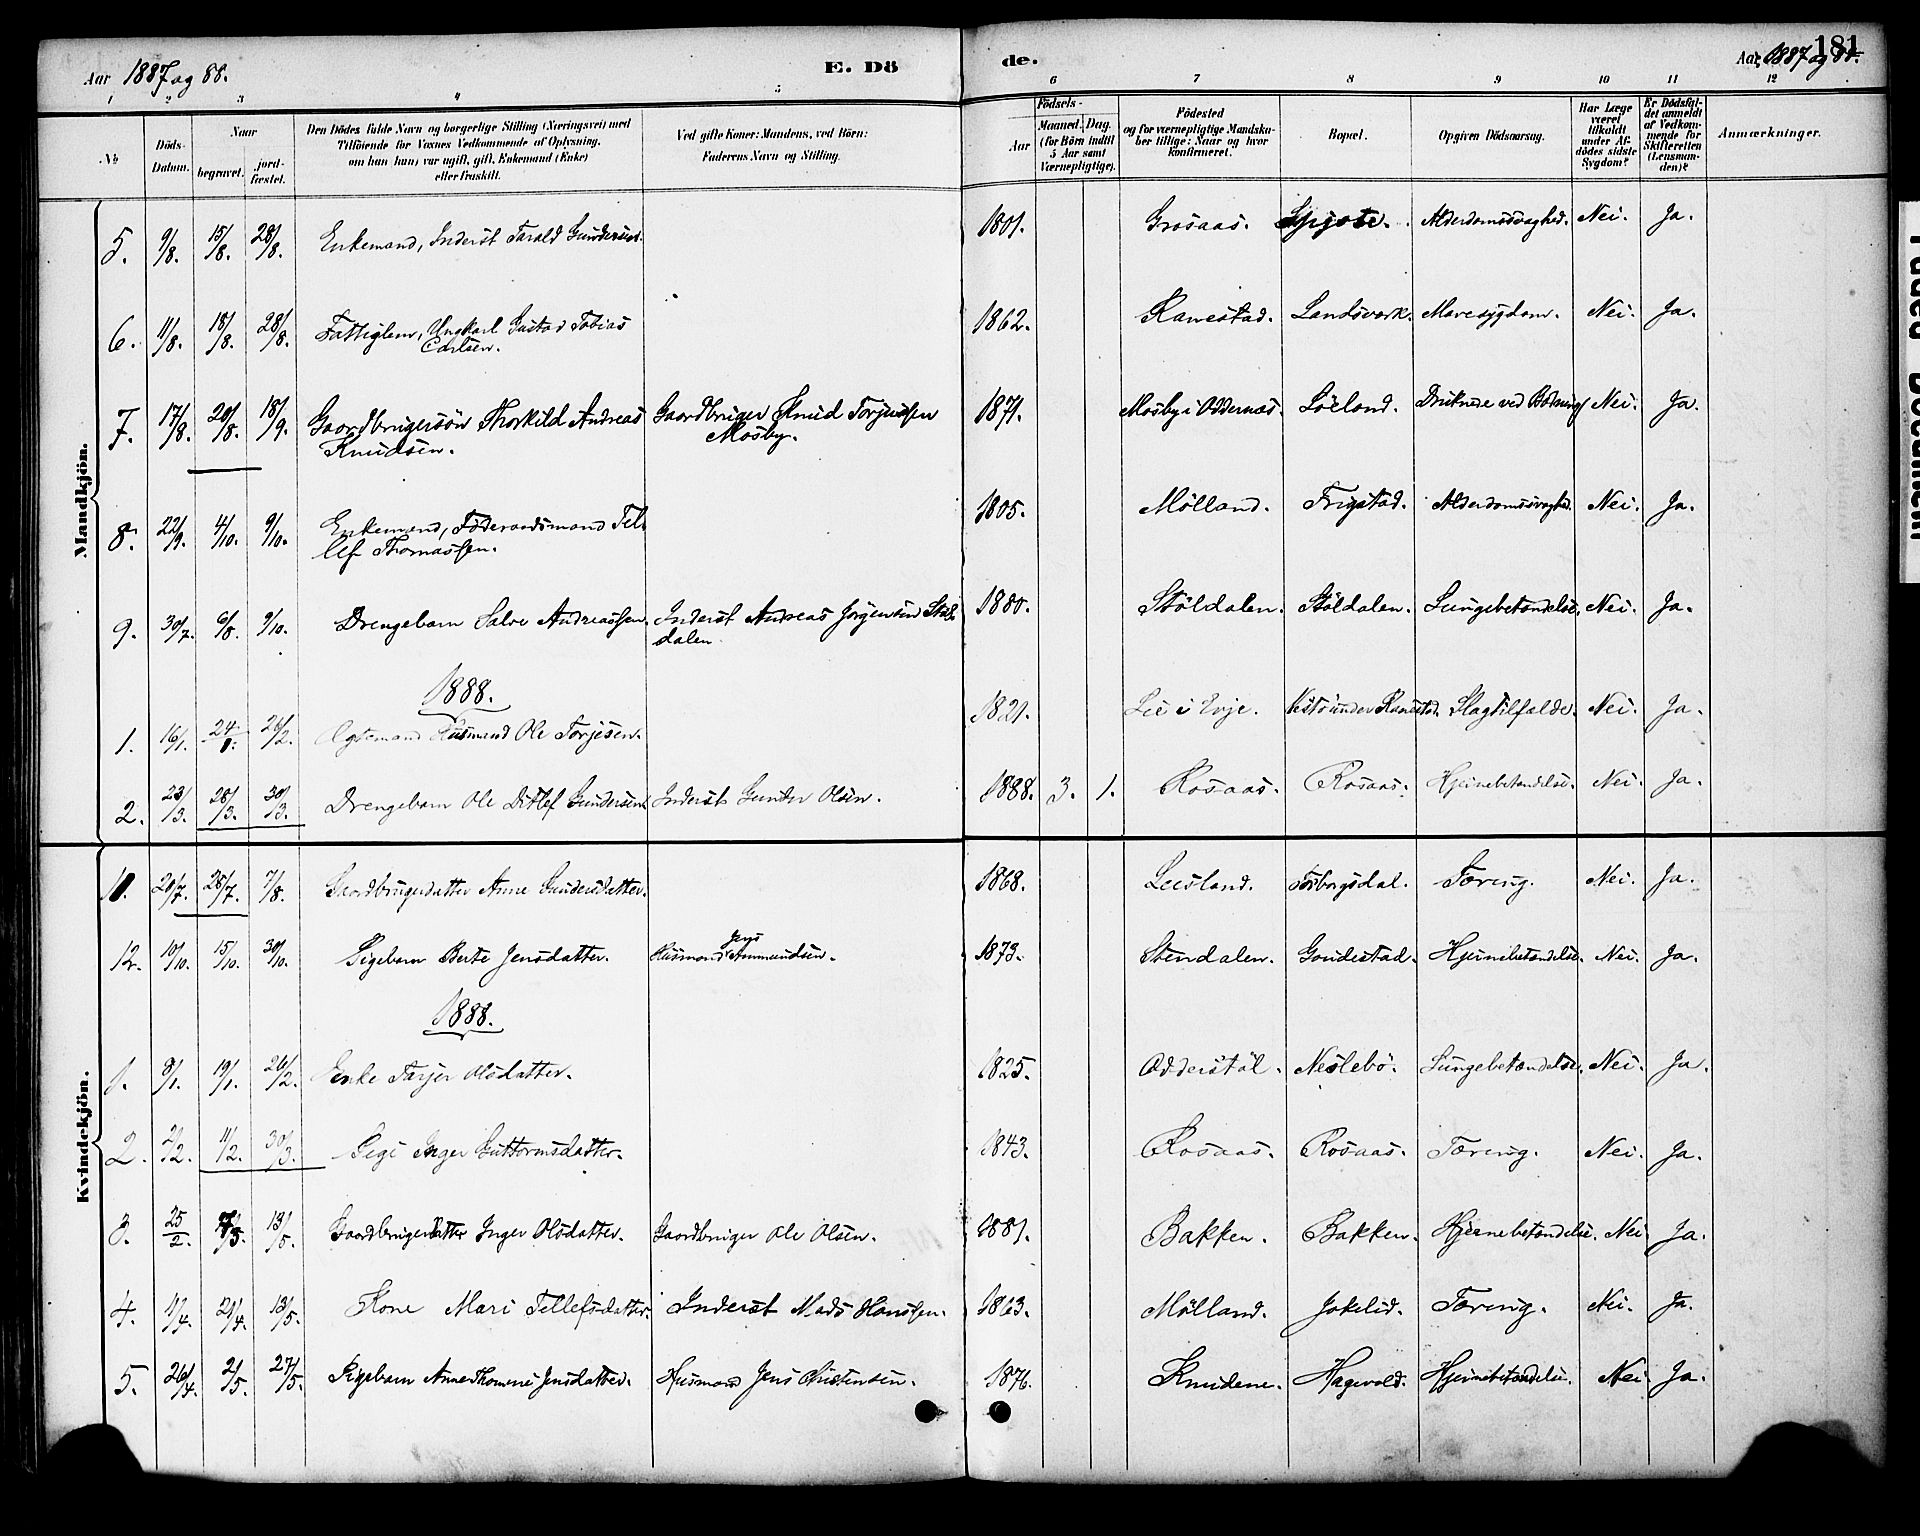 Aar 1887 og 88.
E. Dö
de.
Aar 1887 og 88.
181
1 2 3 4 5 6 7 8 9 10 11 12
No
Döds-Datum.
Naar
begravet.
jord-fæstet.
Den Dödes fulde Navn og borgerlige Stilling (Næringsvei) med
Tilföiende for Voxnes Vedkommende af Oplysning,
om han (hun) var ugift, gift, Enkemand (Enke)
eller fraskilt.
Ved gifte Koner: Mandens, ved Börn:
Faderens Navn og Stilling.
Födsels-
Aar
Maaned. Dag.
(for Börn indtil
5 Aar samt
Værnepligtige).
Födested
og for værnepligtige Mandska-
ber tillige: Naar og hvor
konfirmeret.
Bopæl.
Opgiven Dödsaarsag.
Har Læge
været
tilkaldt
under Af-
dödes sidste
Sygdom?
Er Dödsfal-
det anmeldt
af Vedkom-
mende for
Skifteretten
(Lensman-
den)?
Anmærkninger.
Mandkjön.
5. 9/8. 15/8. 28/8. Enkemand, Inderst Tarald Gundersen. 1801. Grosaas. Alderdomssvaghed. Nei. Ja.
6. 11/8. 18/8. 28/8. Fattiglem, Ungkarl Gustav Tobias
Carlsen. 1862. Kanestad. Landsverk. Mavesygdom. Nei. Ja.
7. 17/8. 20/8. 18/9. Gaardbrugersön Thorkild Andreas
Knudsen. Gaardbruger Knud Torjussen
Mosby. 1871. Mosby i Oddernæs. Löeland. Druknede ved Badning Nei. Ja.
8. 22/9. 4/10. 9/10. Enkemand, Föderaadsmand Tel
lef Thomassen. 1805. Mölland. Frigstad. Alderdomssvaghed. Nei. Ja.
9. 30/7. 6/8. 9/10. Drengebarn Salve Andreassen. Inderst Andreas Jörgensen Stöl
dalen. 1880. Stöldalen. Stöldalen. Lungebetændelse. Nei. Ja.
1888.
1. 16/1. 24/1. 26/2. Ægtemand Husmand Ole Torjesen. 1821. Lie i Evje. under Kanestad. Slagtilfælde. Nei. Ja.
2. 23/3. 28/3. 30/3. Drengebarn Ole Ditlef Gundersen. Inderst Gunder Olsen. 1888. 3. 1. Rosaas. Rosaas. Hjernebetændelse. Nei. Ja.
Kvindekjön.
20/7. 28/7. 7/8. Gaardbrugerdatter Anne Gundersdatter. 1868. Leisland. Torborgsdal. Tæring. Nei. Ja.
12. 10/10. 15/10. 30/10. Pigebarn Berte Jensdatter. Husmand Jens Ammundsen. 1873. Stendalen. Goudestad. Hjernebetændelse. Nei. Ja.
1888.
1. 8/1. 19/1. 26/2. Enke Tarjer Olsdatter. 1825. Odderstöl. Neslebö. Lungebetændelse. Nei. Ja.
2. 2/2. 11/2. 30/3. Pige Inger Guttormsdatter. 1843. Rosaas. Rosaas. Tæring. Nei. Ja.
3. 25/2. 13/5. Gaardbrugerdatter Inger Olsdatter. Gaardbruger Ole Olsen. 1881. Bakken. Bakken. Hjernebetændelse. Nei Ja.
4. 11/4. 21/4. 13/5. Kone Mari Tellefsdatter. Inderst Mads Hanssen. 1863. Mölland. Jokelid. Tæring. Nei. Ja.
5. 26/4. 2/5. 27/5. Pigebarn Anne Thomine Jensdatter. Husmand Jens Christensen. 1876. Knudene. Hagevold. Hjernebetændelse. Nei Ja.